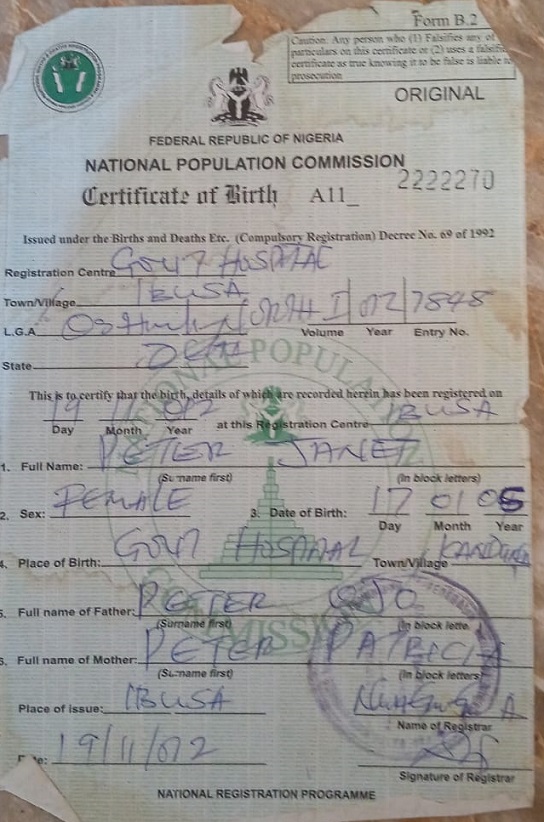 Form B.2
Caution. Any person who (1) Falsifies any of
particulars on this certificate or (2) uses a falsifi
certificate as true knowing it to be false is liable to
prosecution
ORIGINAL
FEDERAL REPUBLIC OF NIGERIA
NATIONAL POPULATION COMMISSION
Certificate of Birth A11_ 2222270
Issued under the Births and Deaths Etc. (Compulsory Registration) Decree No. 69 of 1992
Registration Centre GOVT HOSPITAL
Town/Village IBUSA
L.G.A Volume Year Entry No. 012 7848
State DELTA
This is to certify that the birth, details of which are recorded herein has been registered on
19 11 012 IBUSA
Day Month Year at this Registration Centre
1. Full Name: PETER JANET
(Surname first) (In block letters)
2. Sex: FEMALE 3. Date of Birth: 17 01 05
Day Month Year
4. Place of Birth: GOVT HOSPITAL Town/Village KADUNA
5. Full name of Father: PETER OJO
(Surname first) (In block lette
6. Full name of Mother: PETER PATRICIA
(Surname first) (In block letters)
Place of issue: IBUSA
Name of Registrar
19/11/012
Signature of Registrar
NATIONAL REGISTRATION PROGRAMME